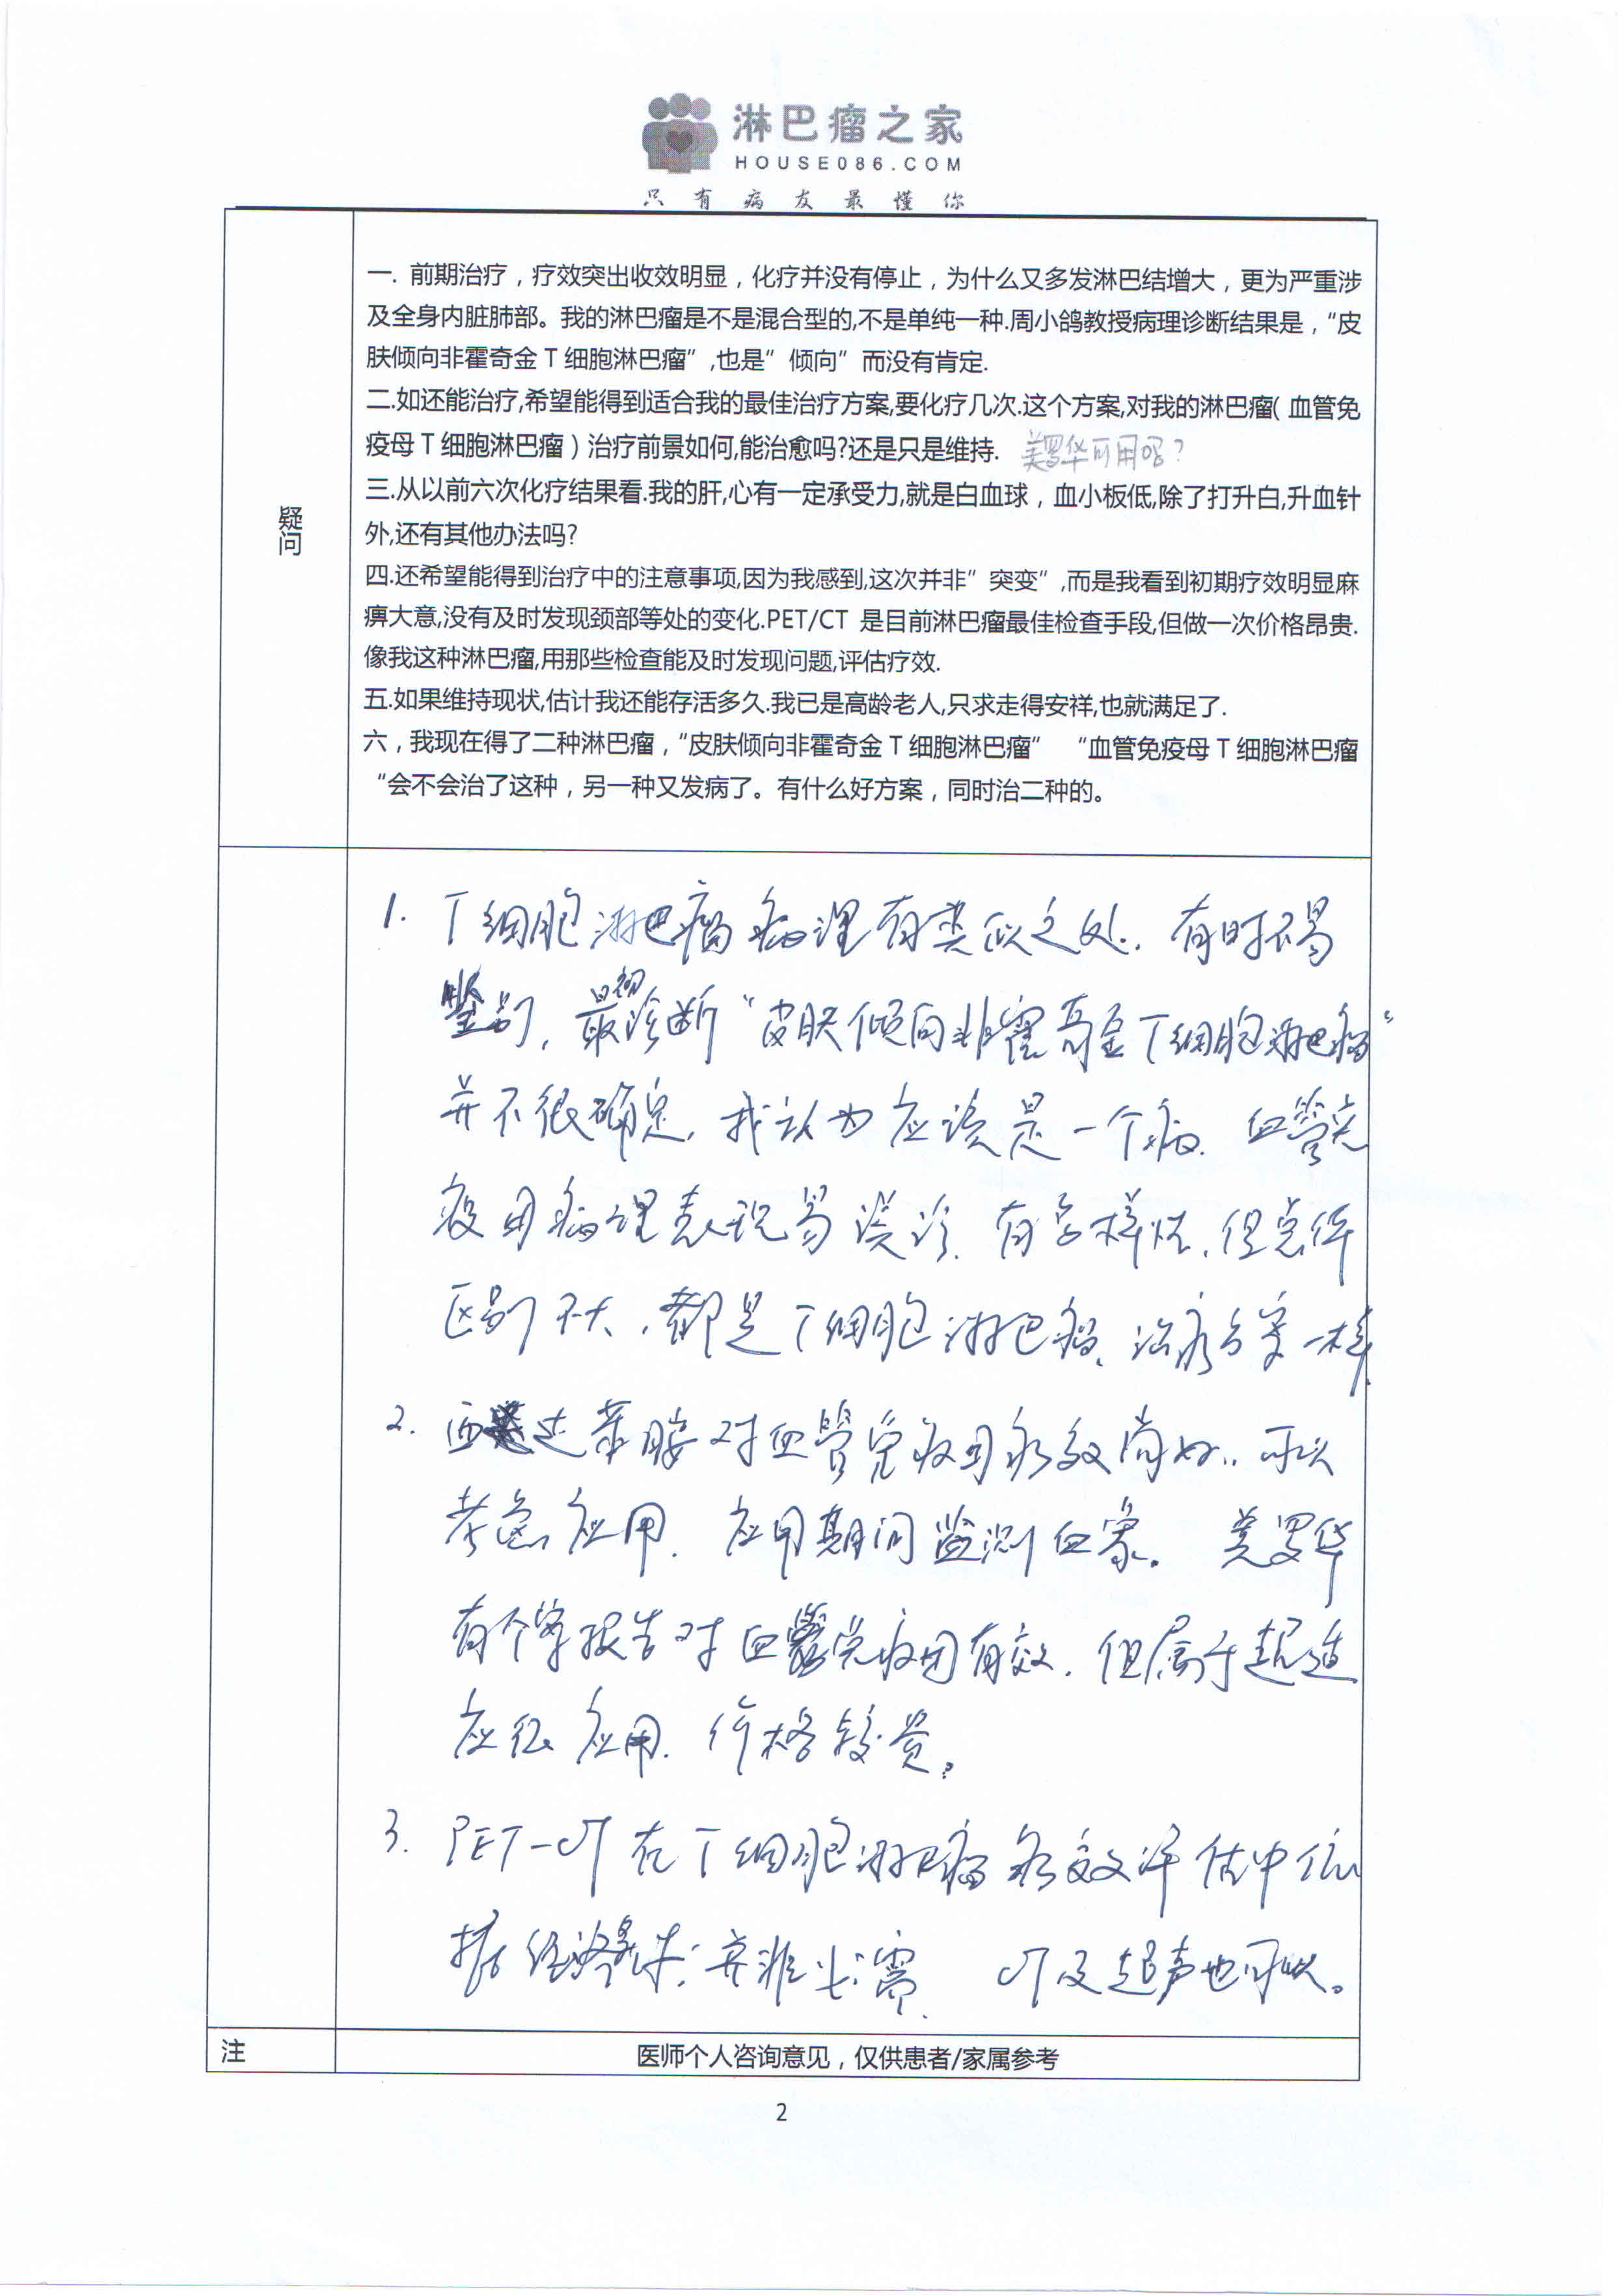 淋巴瘤之家
HOUSE086.COM
只有病友最懂你
疑问
一. 前期治疗，疗效突出收效明显，化疗并没有停止，为什么又多发淋巴结增大，更为严重涉
及全身内脏肺部。我的淋巴瘤是不是混合型的,不是单纯一种.周小鸽教授病理诊断结果是，“皮
肤倾向非霍奇金 T 细胞淋巴瘤”,也是”倾向”而没有肯定.
二.如还能治疗,希望能得到适合我的最佳治疗方案,要化疗几次.这个方案,对我的淋巴瘤( 血管免
疫母 T 细胞淋巴瘤 ) 治疗前景如何,能治愈吗?还是只是维持. 美罗华可用吗?
三.从以前六次化疗结果看.我的肝,心有一定承受力,就是白血球，血小板低,除了打升白,升血针
外,还有其他办法吗?
四.还希望能得到治疗中的注意事项,因为我感到,这次并非”突变”,而是我看到初期疗效明显麻
痹大意,没有及时发现颈部等处的变化.PET/CT 是目前淋巴瘤最佳检查手段,但做一次价格昂贵.
像我这种淋巴瘤,用那些检查能及时发现问题,评估疗效.
五.如果维持现状,估计我还能存活多久.我已是高龄老人,只求走得安祥,也就满足了.
六，我现在得了二种淋巴瘤，“皮肤倾向非霍奇金 T 细胞淋巴瘤” “血管免疫母 T 细胞淋巴瘤
“会不会治了这种，另一种又发病了。有什么好方案，同时治二种的。
1. T细胞淋巴瘤病理有类似之处. 有时不易
鉴别, 最初诊断“皮肤倾向非霍奇金T细胞淋巴瘤”
并不很确定. 我认为应该是一个病. 血管免
疫母病理表现易误诊. 有多样性. 但总体
区别不大, 都是T细胞淋巴瘤. 治疗方案一样.
2. 西达苯胺对血管免疫母疗效尚好. 可以
考虑应用. 应用期间监测血象。 美罗华
有个案报告对血管免疫母有效. 但属于超适
应征应用. 价格较贵。
3. PET-CT在T细胞淋巴瘤疗效评估中依
据经济条件: 并非必需. CT及超声也可以。
注
医师个人咨询意见，仅供患者/家属参考
2